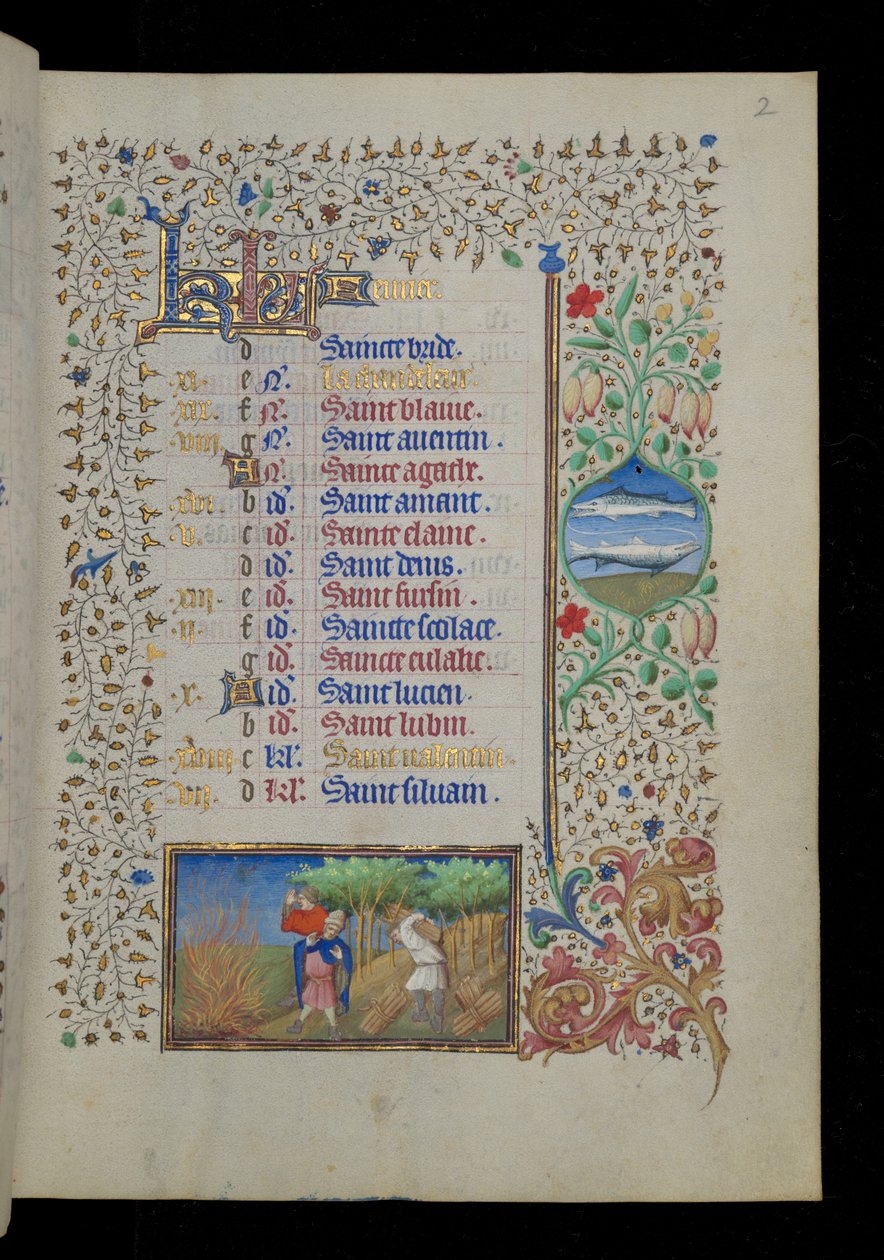 2
KL Feurier.
d Saincte bride.
xi. e N. La chandeleur.
xix f N. Saint blaiue.
viii. g N. Saint auentin.
A N. Saincte agathe.
xvi. b id. Saint amant.
v. c id. Saincte elaine.
d id. Saint denis.
xiii. e id. Saint fursin.
ii. f id. Saincte scolace.
g id. Saincte eulalie.
x. A id. Saint lucien.
b id. Saint lubin.
xviii c kl. Saint ualentin.
vii. d kl. Saint siluain.